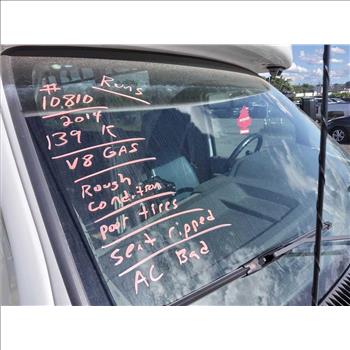 # Runs
10.810
2014
139 K
V8 GAS
Rough
condition
poor tires
seit ripped
AC Bad